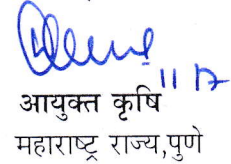 11/7
आयुक्त कृषि
महाराष्ट्र राज्य,पुणे